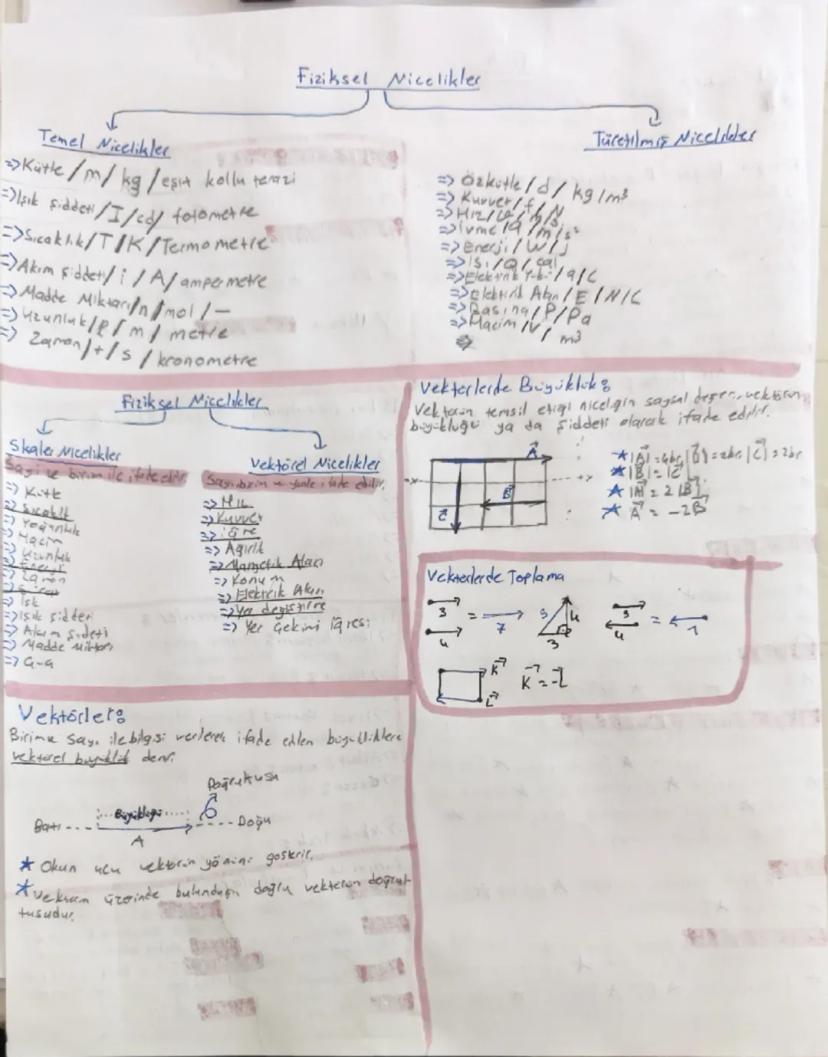 Fiziksel Nicelikler
Temel Nicelikler
=> Kütle / m / kg / eşit kollu terazi
=> Işık şiddeti / I / cd / fotometre
=> Sıcaklık / T / K / Termometre
=> Akım şiddeti / i / A / ampermetre
=> Madde Miktarı / n / mol / -
=> Uzunluk / l / m / metre
=> Zaman / t / s / kronometre
Türetilmiş Nicelikler
=> Özkütle / d / kg/m³
=> Kuvvet / f / N
=> Hız / V / m/s
=> İvme / a / m/s²
=> Enerji / W / j
=> Isı / Q / cal
=> Elektrik Yükü / q / C
=> Elektrik Alan / E / N/C
=> Basınç / P / Pa
=> Hacim / V / m³
Fiziksel Nicelikler
Skaler Nicelikler
Sayı ve birim ile ifade edilir
=> Kütle
=> Sıcaklık
=> Yoğunluk
=> Hacim
=> Uzunluk
=> Enerji
=> Zaman
=> Isı
=> Işık şiddeti
=> Akım şiddeti
=> Madde Miktarı
Vektörel Nicelikler
Sayı, birim ve yönle ifade edilir.
=> Hız
=> Kuvvet
=> Ağırlık
=> Manyetik Alan
=> Konum
=> Elektrik Alan
=> Yer değiştirme
=> Yer Çekimi
Vektörlerde Büyüklük:
Vektörün temsil ettiği niceliğin sayısal değeri, vektörün
büyüklüğü ya da şiddeti olarak ifade edilir.
A
B
C
|A| = 4br, |B| = 2br |C| = 2br
|B| = |C|
|A| = 2 |B|
A = -2B
Vektörlerde Toplama
3
4
= 7
5 4
3
3
4
= 1
K
L
K = -L
Vektörler:
Birimi sayı ile bilgisi verilerek ifade edilen büyüklüklere
vektörel büyüklük denir.
Doğrultusu
Büyüklüğü
Batı
Doğu
A
* Okun ucu vektörün yönünü gösterir.
* Vektörün üzerinde bulunduğu doğru vektörün doğrul-
tusudur.